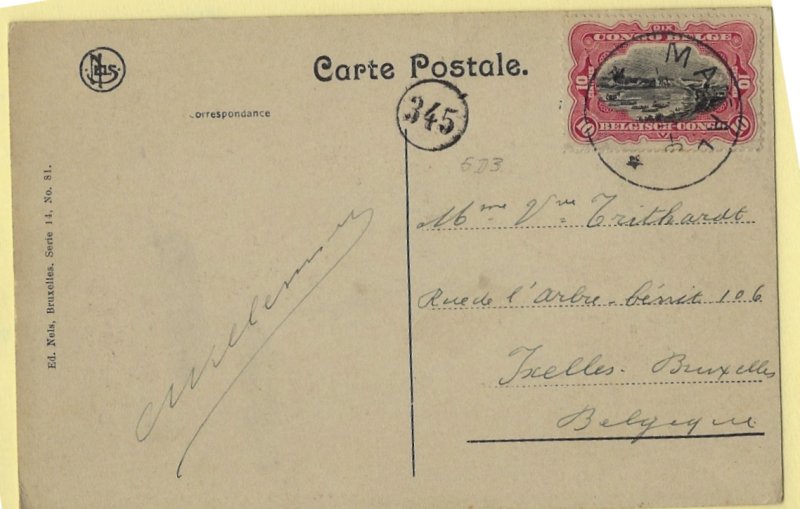 Nels
Carte Postale.
Correspondance
345
DIX
CONGO BELGE
10 10
10 10
BELGISCH-CONGO
MA
6D3
Ed. Nels, Bruxelles. Serie 14. No. 81.
Mme Vve Trithardt
Rue de l'Arbre-bénit 106
Ixelles-Bruxelles
Belgique